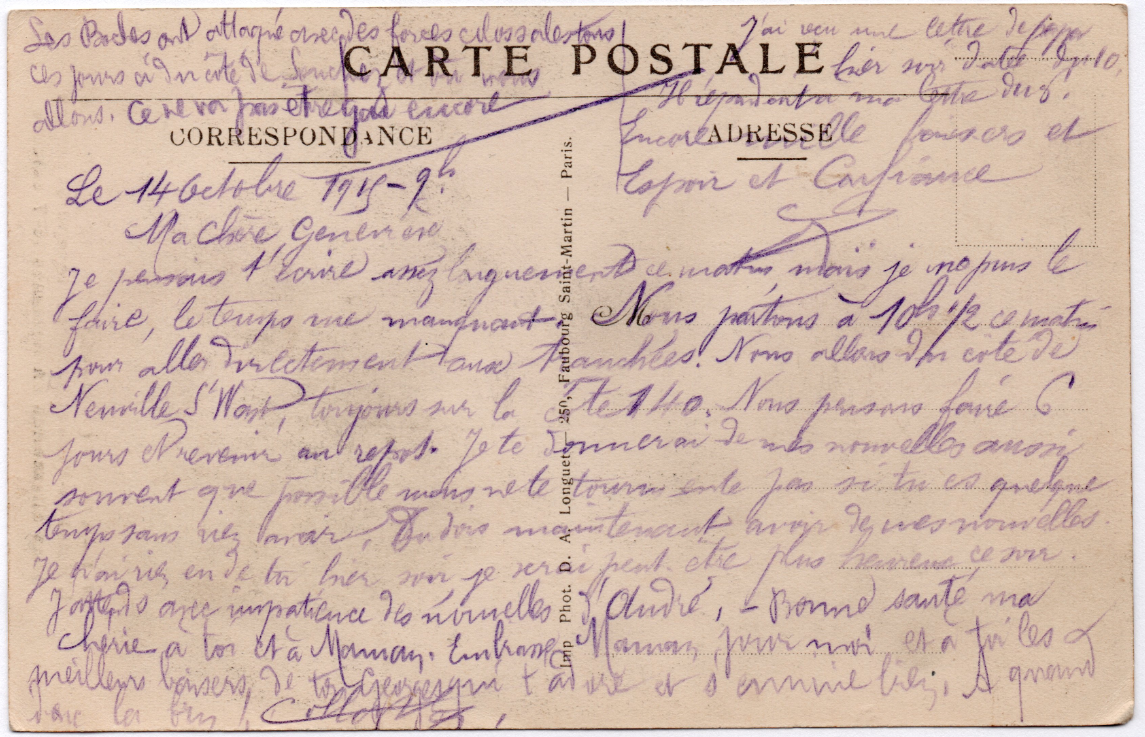 Les Boches ont attaqué avec des forces colossales tous
ces jours ci du côté de Souchez et où nous
allons. Ce ne va pas être gai encore
J'ai reçu une lettre de papa
hier soir datée du 10.
Il répondait à ma lettre du 5.
Encore mille baisers et
Espoir et Confiance
CARTE POSTALE
CORRESPONDANCE
ADRESSE
Le 14 Octobre 1915 - 9h
Ma Chère Geneviève
Je pensais t'écrire assez longuement ce matin mais je ne puis le
faire, le temps me manquant. Nous partons à 10h 1/2 ce matin
pour aller directement aux tranchées. Nous allons du côté de
Neuville St Wast, toujours sur la côte 140. Nous pensons faire 6
jours et revenir au repos. Je te donnerai de mes nouvelles aussi
souvent que possible mais ne te tourmente pas si tu es quelque
temps sans rien avoir. Tu dois maintenant avoir de mes nouvelles.
Je n'ai rien eu de toi hier soir je serai peut être plus heureux ce soir.
J'attends avec impatience des nouvelles d'André, - Bonne santé ma
Chérie à toi et à Maman. Embrasse Maman pour moi et à toi les
meilleurs baisers de ton Georges qui t'adore et s'ennuie bien. A quand
donc la
Imp Phot. D. A. Longuet — 250, Faubourg Saint-Martin — Paris.